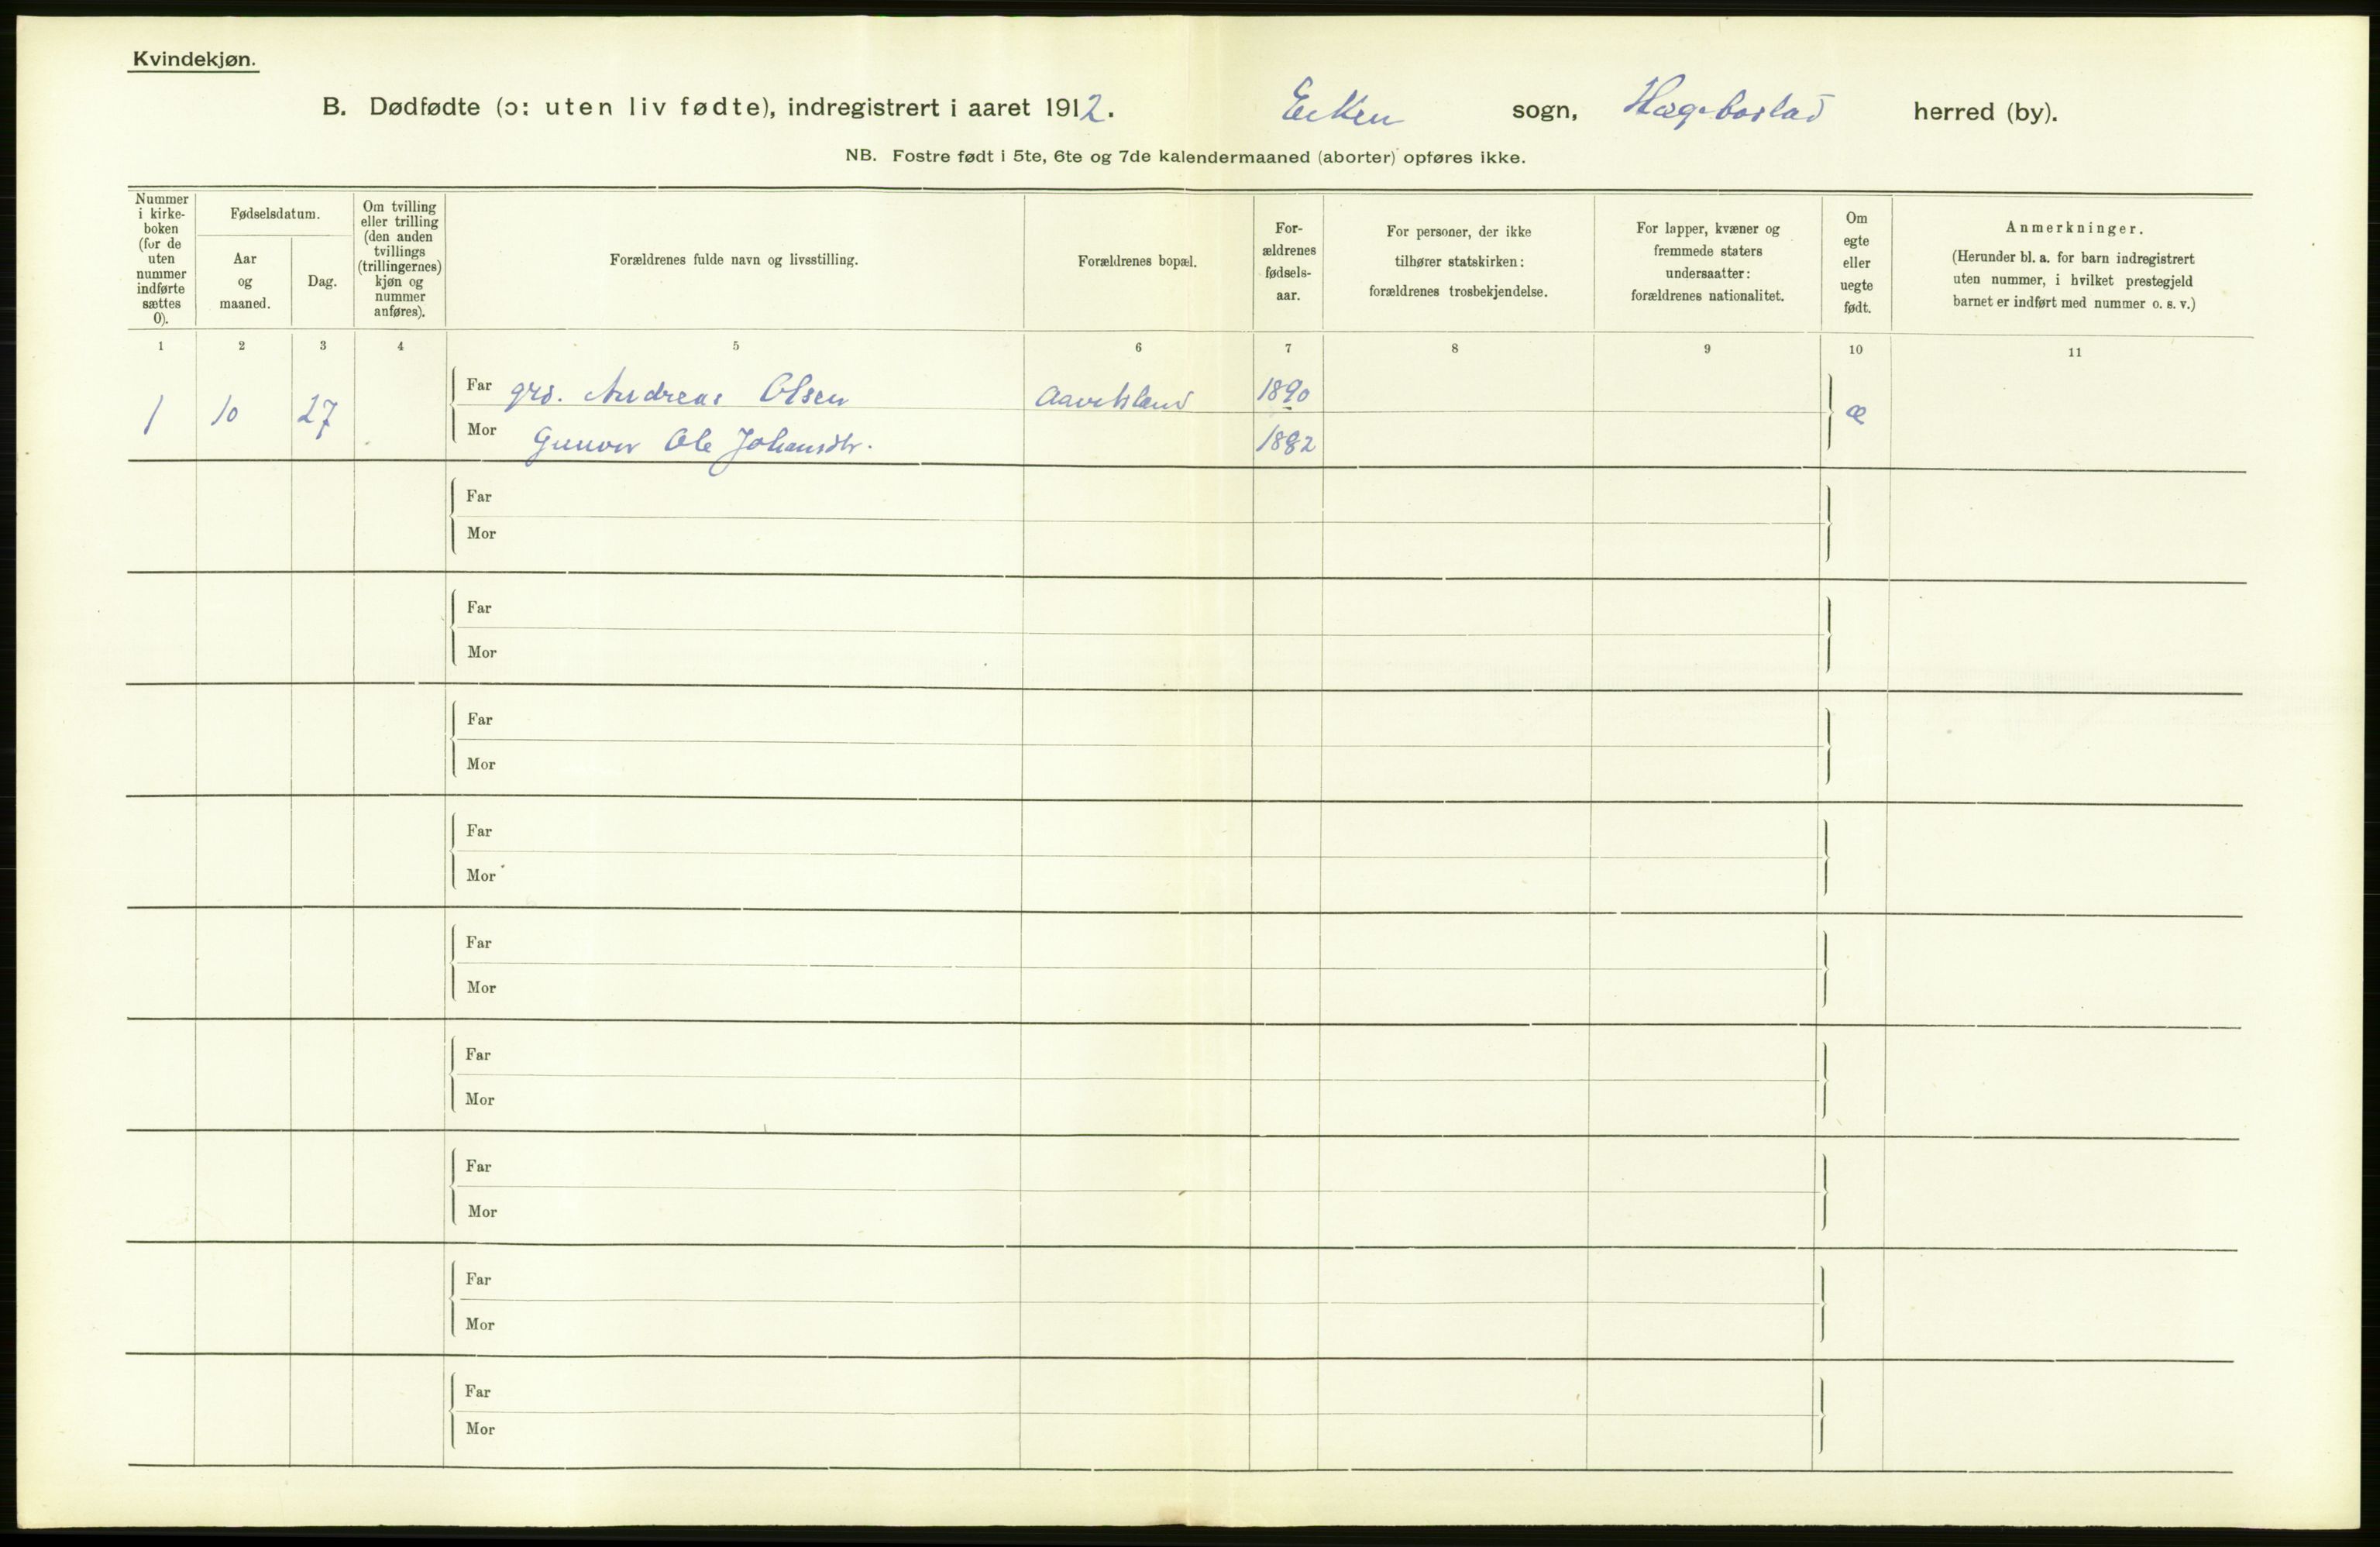 Kvindekjøn.
B. Dødfødte (ɔ: uten liv fødte), indregistrert i aaret 1912. Eiken sogn, Hægebostad herred (by).
NB. Fostre født i 5te, 6te og 7de kalendermaaned (aborter) opføres ikke.
Nummer i kirke- boken (for de uten nummer indførte sættes 0).
Fødselsdatum.
Aar og maaned.
Dag.
Om tvilling eller trilling (den anden tvillings (trillingernes) kjøn og nummer anføres).
Forældrenes fulde navn og livsstilling.
Forældrenes bopæl.
For- ældrenes fødsels- aar.
For personer, der ikke tilhører statskirken: forældrenes trosbekjendelse.
For lapper, kvæner og fremmede staters undersaatter: forældrenes nationalitet.
Om egte eller uegte født.
Anmerkninger.
(Herunder bl. a. for barn indregistrert uten nummer, i hvilket prestegjeld barnet er indført med nummer o. s. v.)
1 2 3 4 5 6 7 8 9 10 11
1 10 27 Far grd. Andreas Olsen Aavetsland 1890 æ
Mor Gunvor Ole Johansdtr. 1892
Far
Mor
Far
Mor
Far
Mor
Far
Mor
Far
Mor
Far
Mor
Far
Mor
Far
Mor
Far
Mor